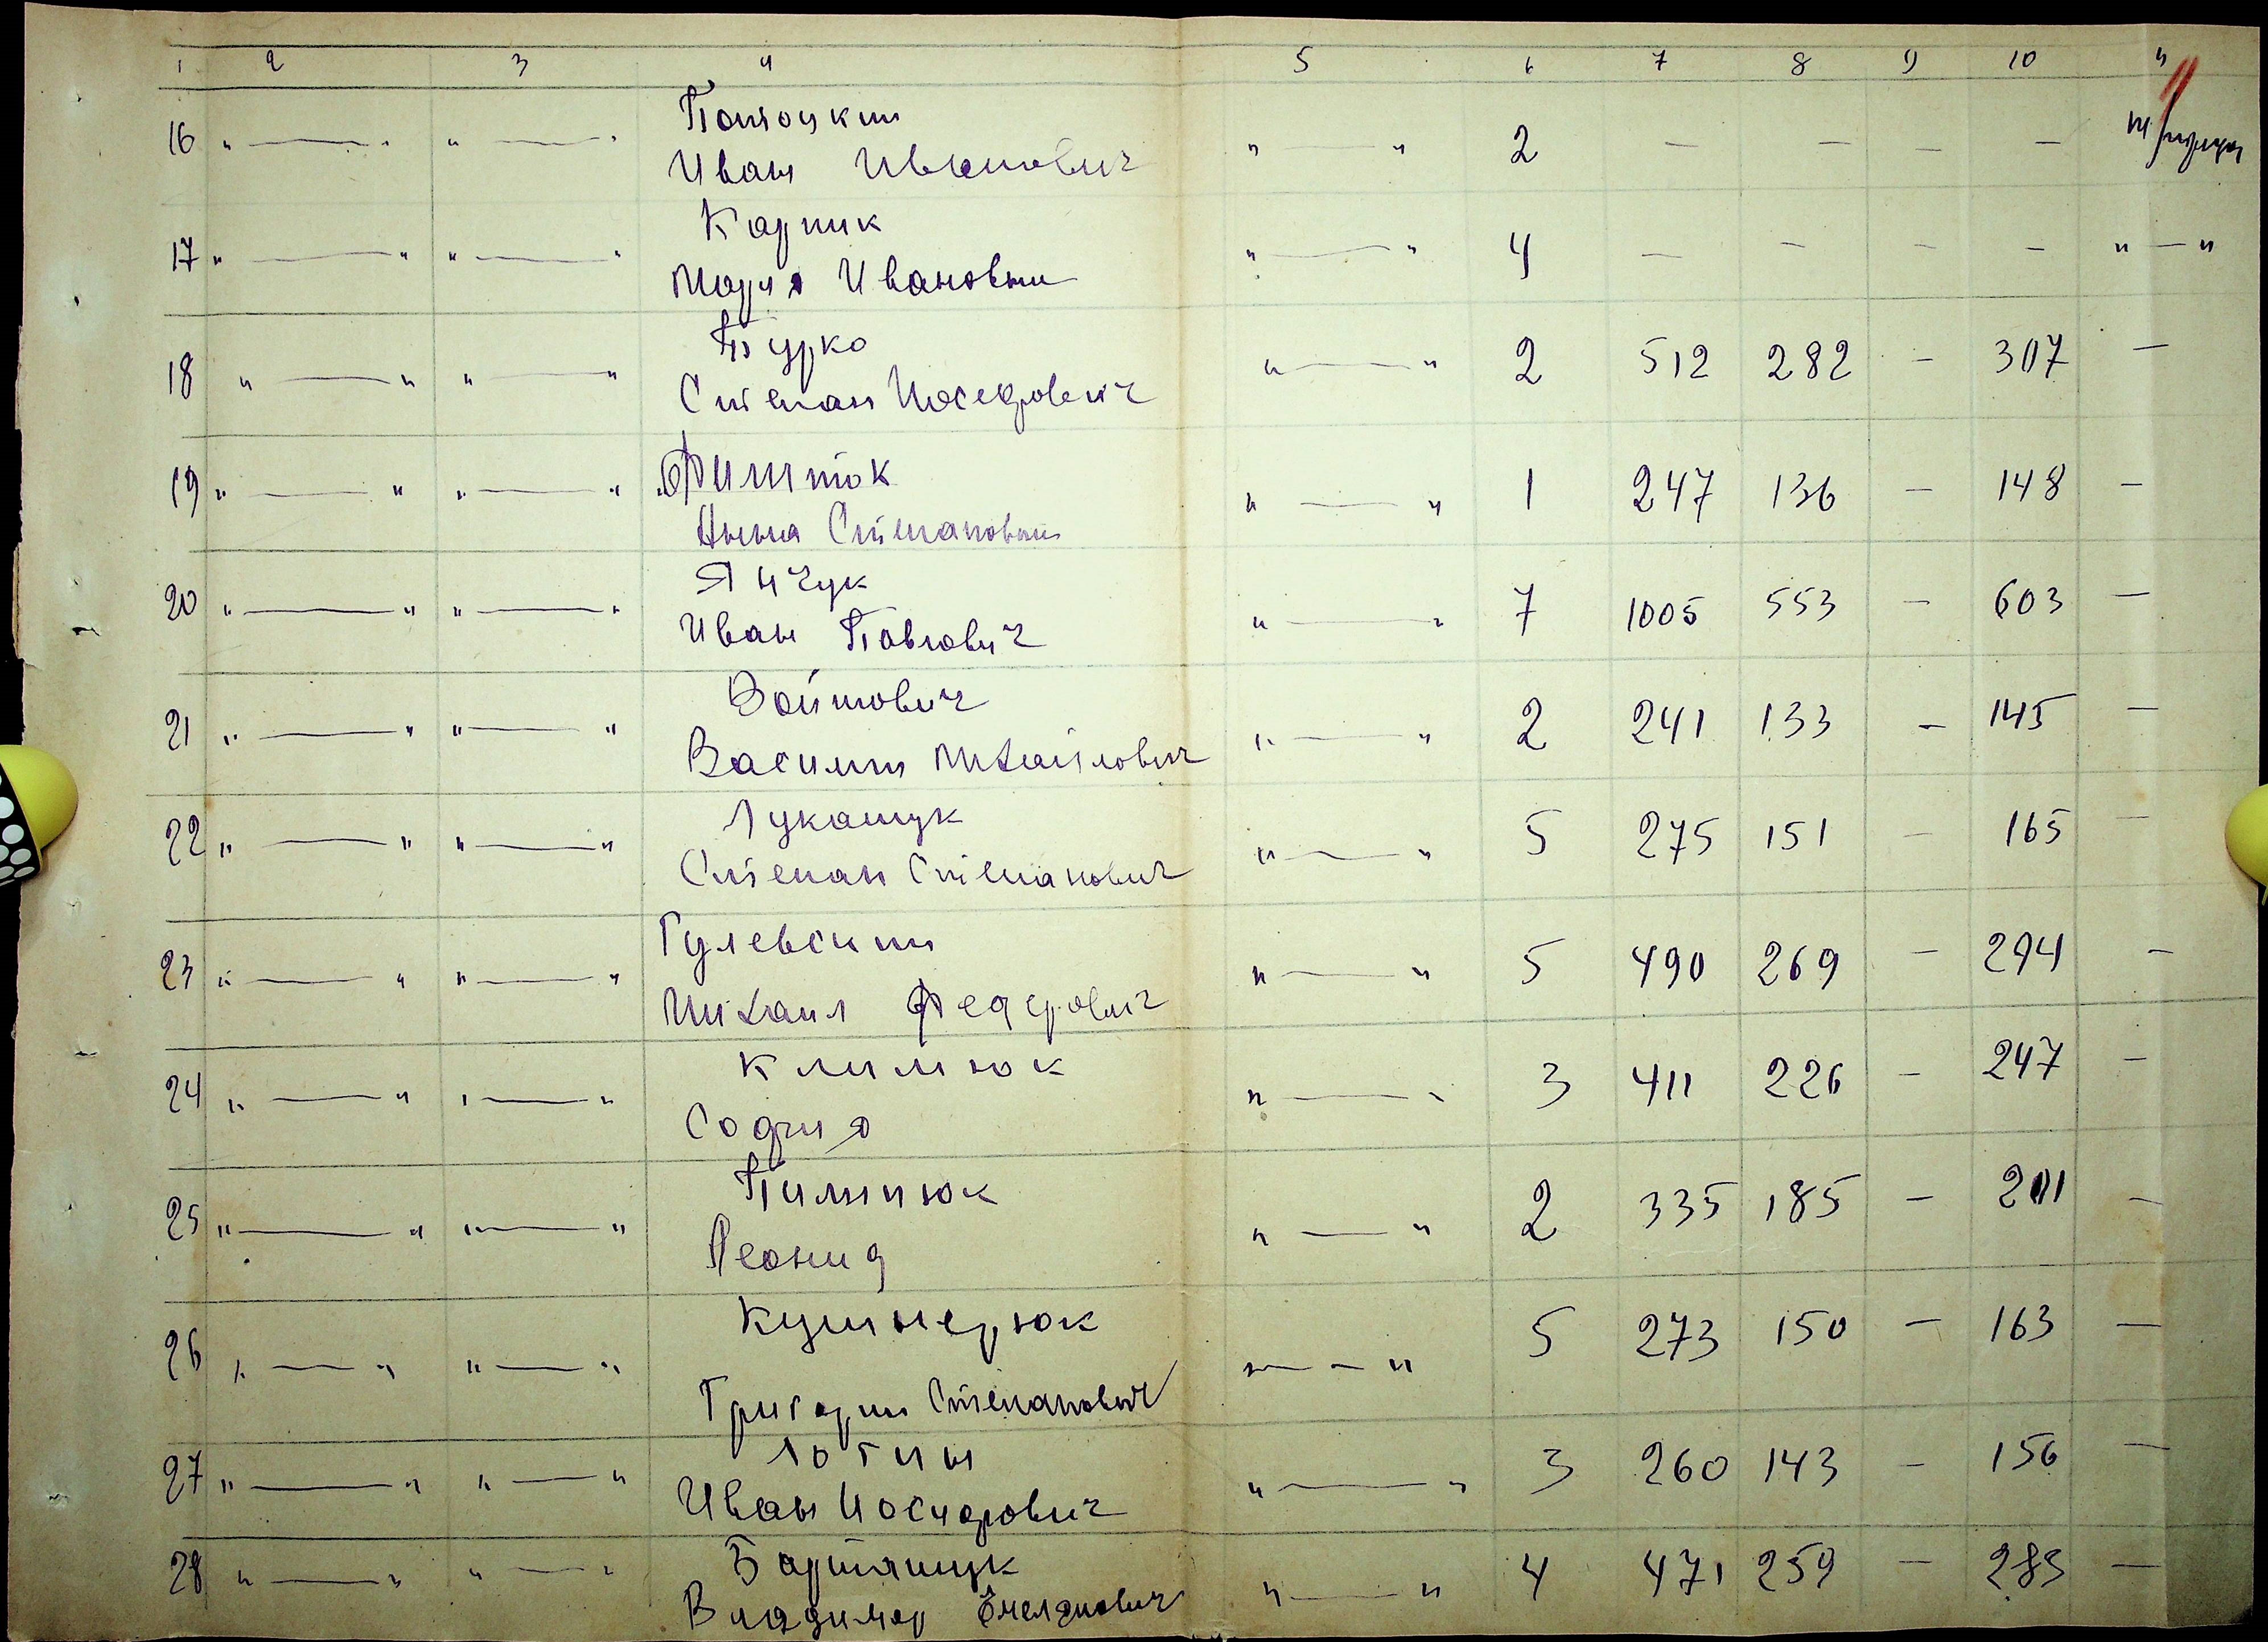 1 2 3 4 5 6 7 8 9 10 11
Потоцкий
16 " — " " — " " — " 2 — — — —
Иван Иванович
Карпик
17 " — " " — " " — " 4 — — — — " — "
Мария Ивановна
Турко
18 " — " " — " " — " 2 512 282 — 307 —
Степан Иосефович
Филипюк
19 " — " " — " " — " 1 247 136 — 148 —
Анна Степановна
Янчук
20 " — " " — " " — " 7 1005 553 — 603 —
Иван Павлович
Войтович
21 " — " " — " " — " 2 241 133 — 145 —
Василий Михайлович
Лукашук
22 " — " " — " " — " 5 275 151 — 165 —
Степан Степанович
Гулевский
23 " — " " — " " — " 5 490 269 — 294 —
Михаил Федерович
Климюк
24 " — " " — " " — " 3 411 226 — 247 —
София
Пилипюк
25 " — " " — " " — " 2 335 185 — 201 —
Леонид
Кушнерюк
26 " — " " — " " — " 5 273 150 — 163 —
Григорий Степанович
Логин
27 " — " " — " " — " 3 260 143 — 156 —
Иван Иосифович
Бартащук
28 " — " " — " " — " 4 471 259 — 283 —
Владимер Емелянович